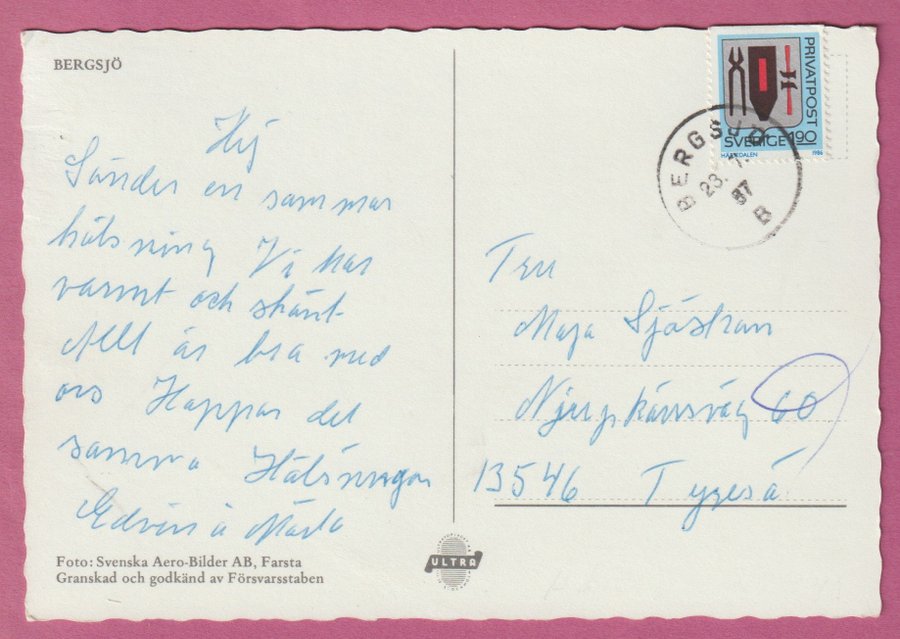 BERGSJÖ
Hej
Sänder en sommar
hälsning Vi har
varmt och skönt
Allt är bra med
oss Hoppas det
samma Hälsningar
Edvin o Märta
Foto: Svenska Aero-Bilder AB, Farsta
Granskad och godkänd av Försvarsstaben
ULTRA
PRIVATPOST
SVERIGE 1.90
HÄRJEDALEN 1986
BERGSJÖ
23. 7.
87
B
Fru
Maja Sjöstran
60
13546 Tyresö